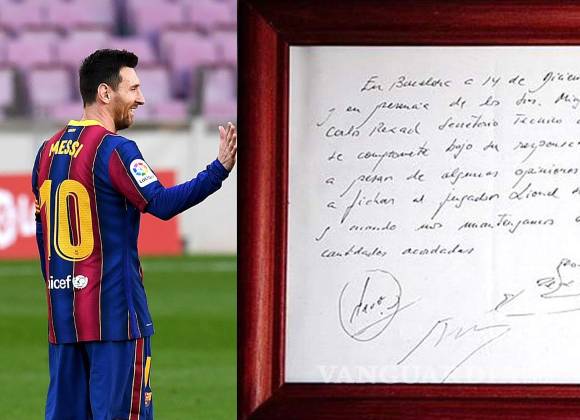 MESSI
10
unicef
LaLiga
En Barcelona a 14 de dicie
y en presencia de los Srs. Min
Carlos Rexach Secretario Técnico
se compromete bajo su respons
a pesar de algunas opiniones
a fichar al jugador Lionel
y cuando nos mantengamos
cantidades acordadas
VANGUARD